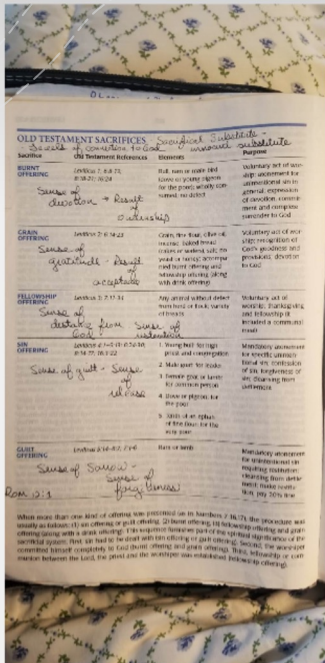 OLD TESTAMENT SACRIFICES Sacrificial Substitute -
innocent substitute
Sacrifice Old Testament References Elements Purpose
BURNT OFFERING
Sense of devotion → Result of ownership
Bull, ram or male bird
(dove or young pigeon
for the poor); wholly con-
sumed; no defect
Voluntary act of wor-
ship; atonement for
unintentional sin in
general; expression
of devotion, commit-
ment and complete
surrender to God
GRAIN OFFERING
Sense of gratitude - Result of acceptance
Grain, fine flour, olive oil,
incense, baked bread
(cakes or wafers), salt; no
yeast or honey; accompa-
nied burnt offering and
fellowship offering (along
with drink offering)
Voluntary act of wor-
ship; recognition of
God's goodness and
provisions; devotion
to God
FELLOWSHIP OFFERING
Sense of distance from God
Sense of
Any animal without defect
from herd or flock; variety
of breads
Voluntary act of
worship; thanksgiving
and fellowship (it
included a communal
meal)
SIN OFFERING
Sense of guilt - Sense of release
1. Young bull: for high
priest and congregation
2. Male goat: for leader
3. Female goat or lamb:
for common person
4. Dove or pigeon: for
the poor
5. Tenth of an ephah
of fine flour: for the
very poor
Mandatory atonement
for specific uninten-
tional sin; confession
of sin; forgiveness of
sin; cleansing from
defilement
GUILT OFFERING
Sense of Sorrow - Sense of forgiveness
Ram or lamb
Mandatory atonement
for unintentional sin
requiring restitution;
cleansing from defile-
ment; make restitu-
tion; pay 20% fine
Rom 12:1
When more than one kind of offering was presented (as in Numbers 7:16,17), the procedure was
usually as follows: (1) sin offering or guilt offering, (2) burnt offering, (3) fellowship offering and grain
offering (along with a drink offering). This sequence furnishes part of the spiritual significance of the
sacrificial system. First, sin had to be dealt with (sin offering or guilt offering). Second, the worshiper
committed himself completely to God (burnt offering and grain offering). Third, fellowship or com-
munion between the Lord, the priest and the worshiper was established (fellowship offering).